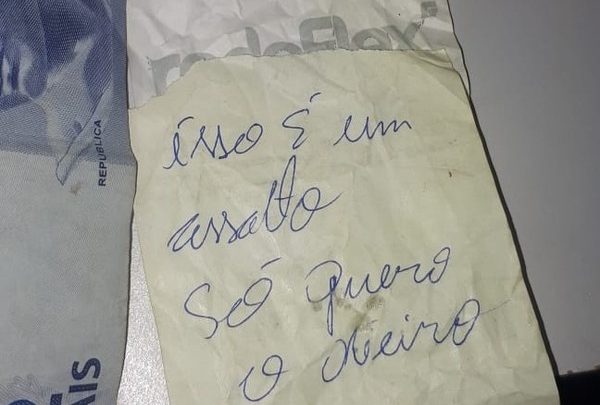 redeFlex
REPUBLICA
isso É um
assalto
Só quero
o dieiro
AIS